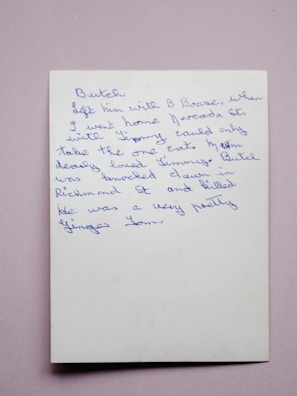 Butch
Left him with B Boase, when
I went home Nercada St,
with Timmy could only
take the one cat. Mum
dearly loved Timmy. Butch
was knocked down in
Richmond St and killed
He was a very pretty
Ginger Tom